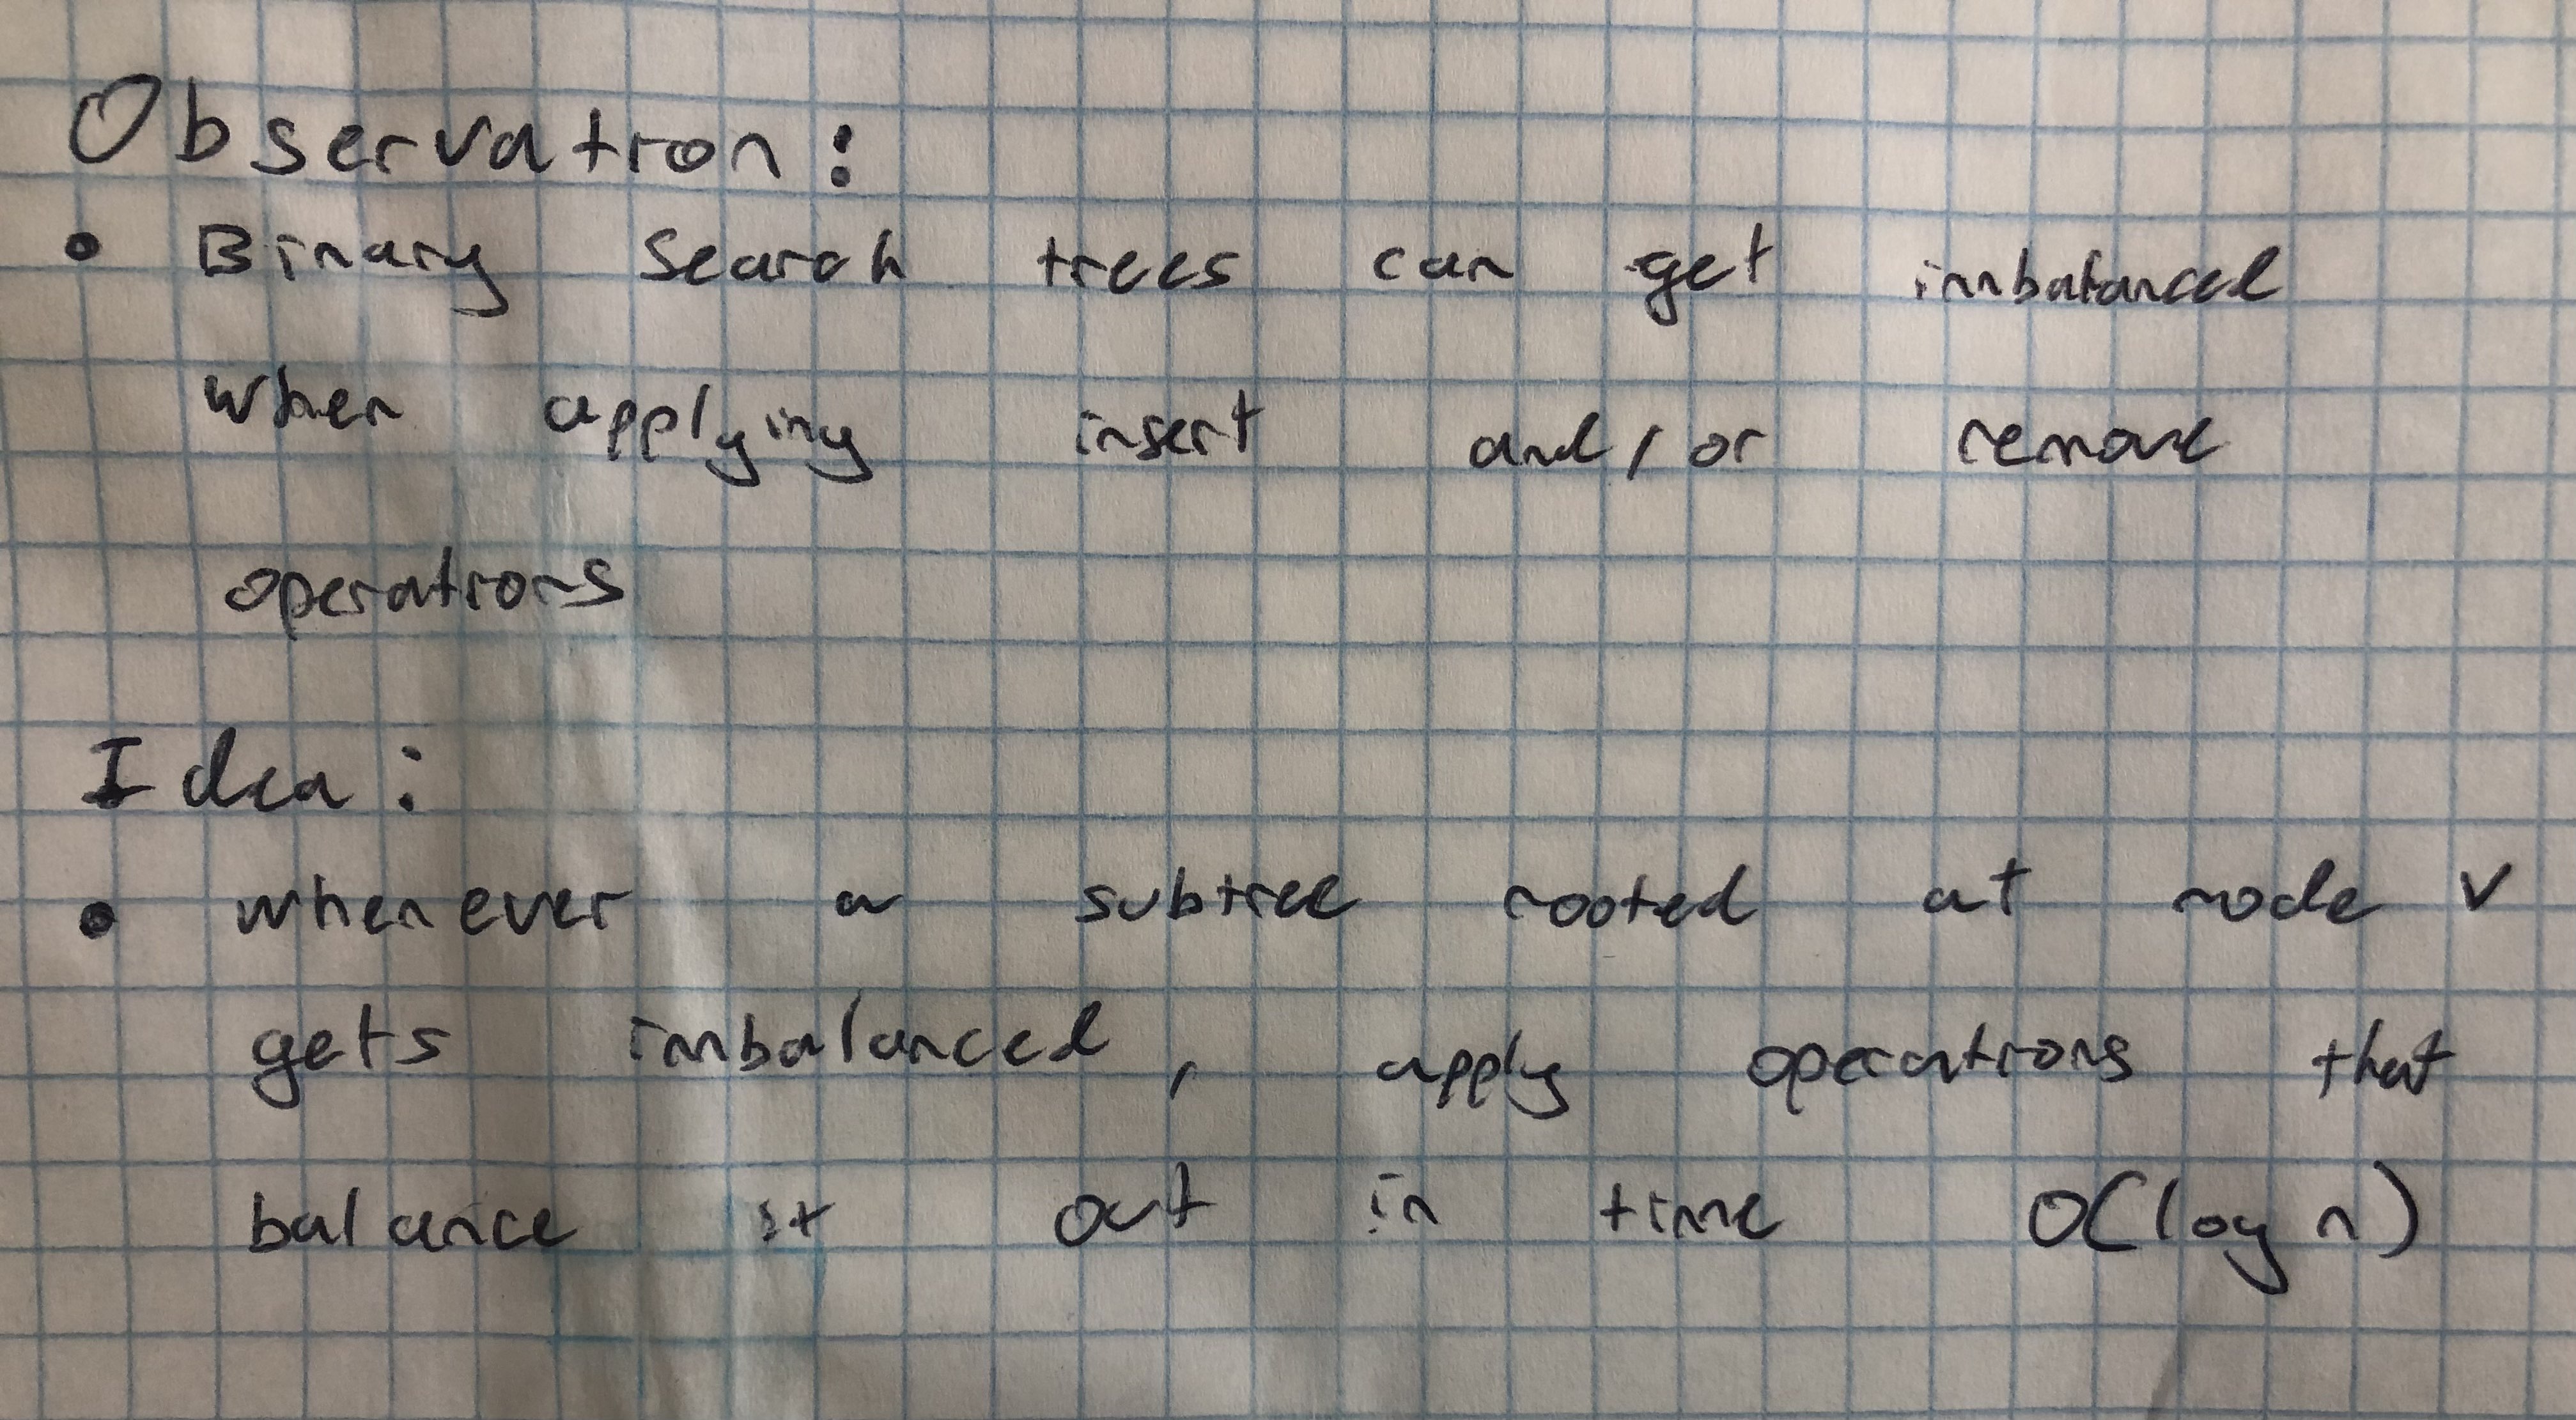 Observation:
• Binary search trees can get imbalanced
when applying insert and/or remove
operations
Idea:
• whenever a subtree rooted at node v
gets imbalanced, apply operations that
balance it out in time O(log n)